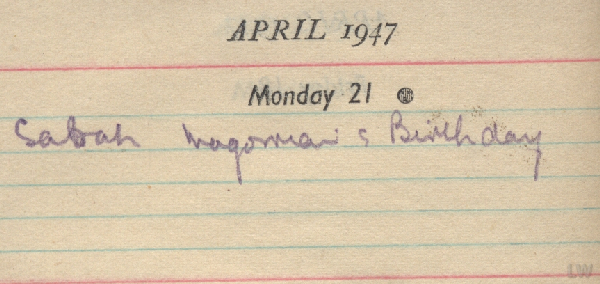 APRIL 1947
Monday 21
Sabah Birthday
LW